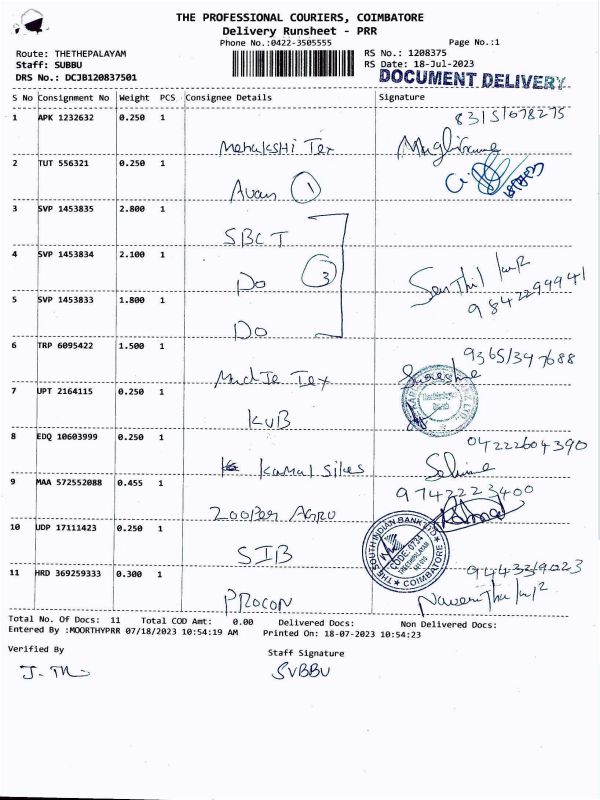 THE PROFESSIONAL COURIERS, COIMBATORE
Delivery Runsheet - PRR
Phone No.:0422-3505555 Page No.:1
Route: THETHEPALAYAM RS No.: 1208375
Staff: SUBBU RS Date: 18-Jul-2023
DRS No.: DCJB120837501 DOCUMENT DELIVERY
S No Consignment No Weight PCS Consignee Details Signature
1 APK 1232632 0.250 1
2 TUT 556321 0.250 1
Avan 1
3 SVP 1453835 2.800 1
SBCT
4 SVP 1453834 2.100 1
Do 3 Senthil
5 SVP 1453833 1.800 1 9842299941
Do
6 TRP 6095422 1.500 1
Tex Suresh
7 UPT 2164115 0.250 1
KVB
8 EDQ 10603999 0.250 1 04222604390
Kamal Silks
9 MAA 572552088 0.455 1 9742223400
Zooper Agro
10 UDP 17111423 0.250 1 THE SOUTH INDIAN BANK LTD CODE-0734 COIMBATORE
SIB
11 HRD 369259333 0.300 1
PROCON
Total No. Of Docs: 11 Total COD Amt: 0.00 Delivered Docs: Non Delivered Docs:
Entered By :MOORTHYPRR 07/18/2023 10:54:19 AM Printed On: 18-07-2023 10:54:23
Verified By Staff Signature
SUBBU